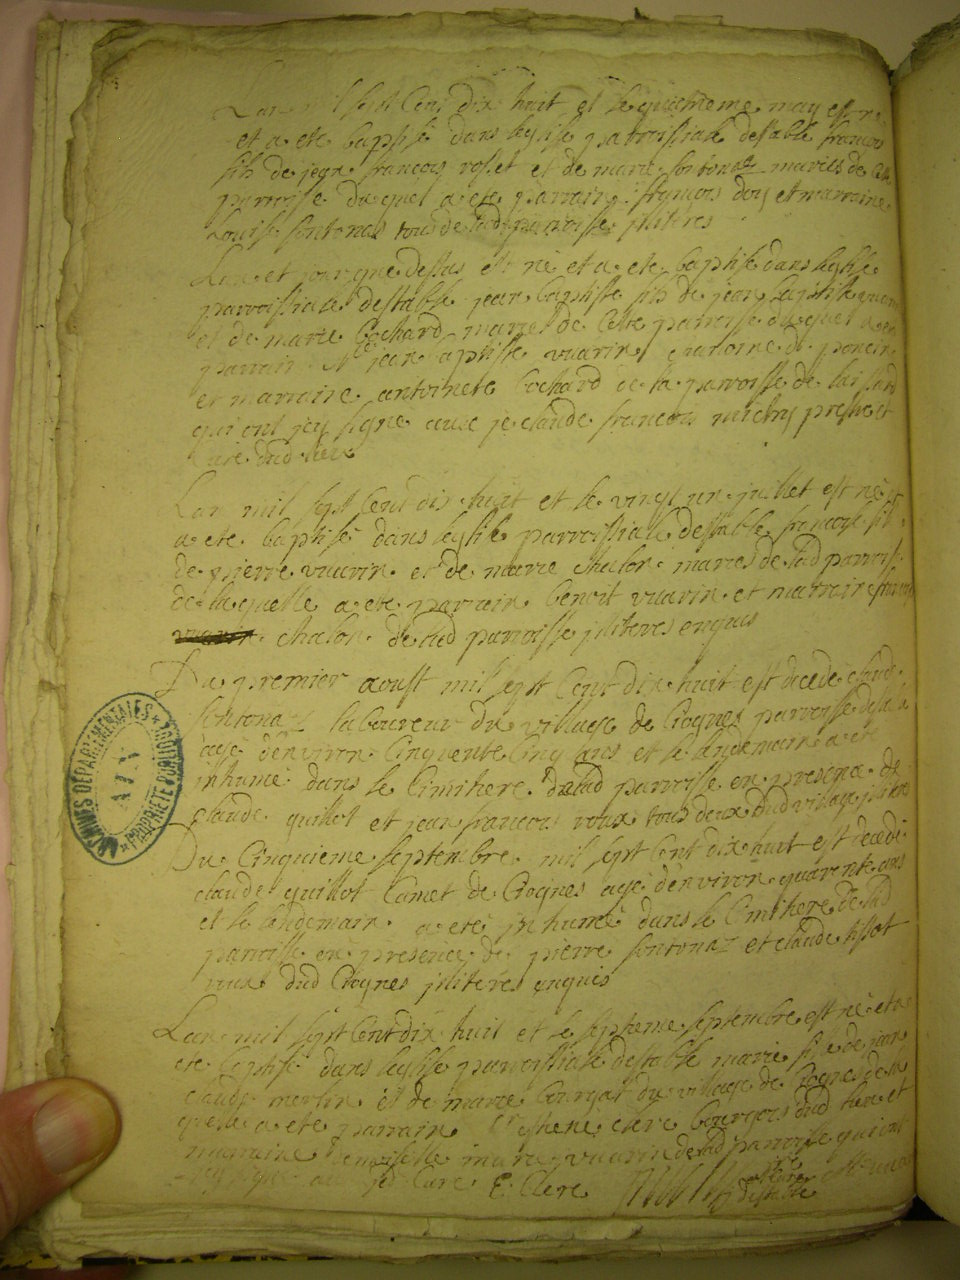 Lan mil sept Cent dix huit et le quinzieme may est ne
et a ete baptisé dans leglise parroissiale destable francois
fils de jean francois roset et de marie fontonaz mariés de Cette
parroisse duquel a ete parrain francois et marraine
Louise fontonas tous de lad parroisse jliteres
Lan et jour que dessus est ne et a ete baptisé dans leglise
parroissiale destable jean baptiste fils de jean baptiste vuarin
et de marie Cochard mariés de Cette parroisse duquel a ete
parrain jean baptiste vuarin chanoine de poncin
et marraine antoinete Cochard de la parroisse de
qui ont jcy signé avec je claude francois prestre et
Curé dud lieu
Lan mil sept Cent dix huit et le vingt un juillet est né et
a ete baptisé dans leglise parroissiale destable francoise fille
de pierre vuarin et de marie chalon mariés de lad parroisse
de laquelle a ete parrain benoit vuarin et marraine
chalon de lad parroisse jliteres enquis
Du premier aoust mil sept Cent dix huit est decedé claude
fontonaz laboureur du village de Crognes parroisse destable
agé denviron Cinquente Cinq ans et le landemain a ete
inhumé dans le Cimitiere dulad parroisse en presence de
claude guillot et jean francois roux tous deux dud village jliteres
Du Cinquieme septembre mil sept Cent dix huit est decedé
claude guillot Cornet de Crognes agé denviron quarente ans
et le landemain a eté jnhumé dans le Cimitiere de lad
parroisse en presence de pierre fontonaz et claude tissot
roux dud Crognes jliterés enquis
Lan mil sept Cent dix huit et le septieme septembre est né et a
ete baptisé dans leglise parroissiale destable marie fille de jean
claude merlin et de marie du village de Crognes de la
quelle a ete parrain Esthene clerc bourgois dud lieu et
marraine demoiselle marie vuarin de lad parroisse qui ont
jcy signé avec led Curé E: Clerc
Curé
destable
ARCHIVES DEPARTEMENTALES
AIN
PROPRIETE PUBLIQUE